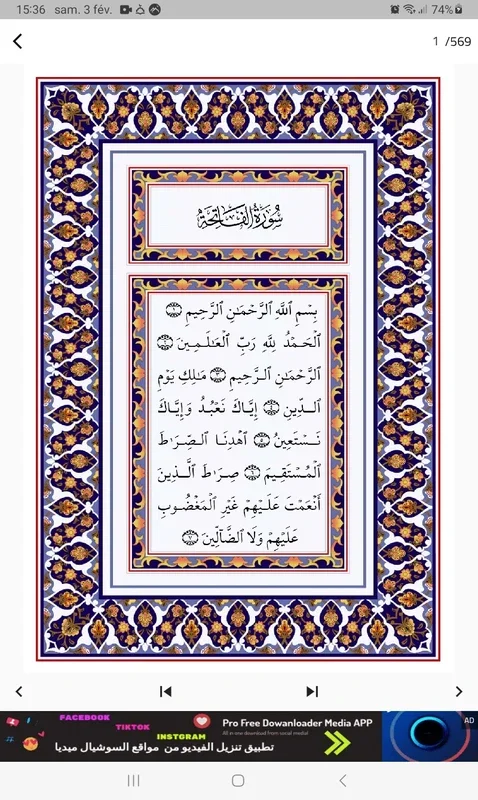 15:36 sam. 3 fév. 74%
1 /569
سُورَةُ الْفَاتِحَةِ
بِسْمِ ٱللَّهِ ٱلرَّحْمَـٰنِ ٱلرَّحِيمِ ١
ٱلْحَمْدُ لِلَّهِ رَبِّ ٱلْعَـٰلَمِينَ ٢
ٱلرَّحْمَـٰنِ ٱلرَّحِيمِ ٣ مَـٰلِكِ يَوْمِ
ٱلدِّينِ ٤ إِيَّاكَ نَعْبُدُ وَإِيَّاكَ
نَسْتَعِينُ ٥ ٱهْدِنَا ٱلصِّرَٰطَ
ٱلْمُسْتَقِيمَ ٦ صِرَٰطَ ٱلَّذِينَ
أَنْعَمْتَ عَلَيْهِمْ غَيْرِ ٱلْمَغْضُوبِ
عَلَيْهِمْ وَلَا ٱلضَّآلِّينَ ٧
FACEBOOK
TIKTOK
INSTGRAM
Pro Free Dowanloader Media APP
All in new download from social medial
تطبيق تنزيل الفيديو من مواقع السوشيال ميديا
AD